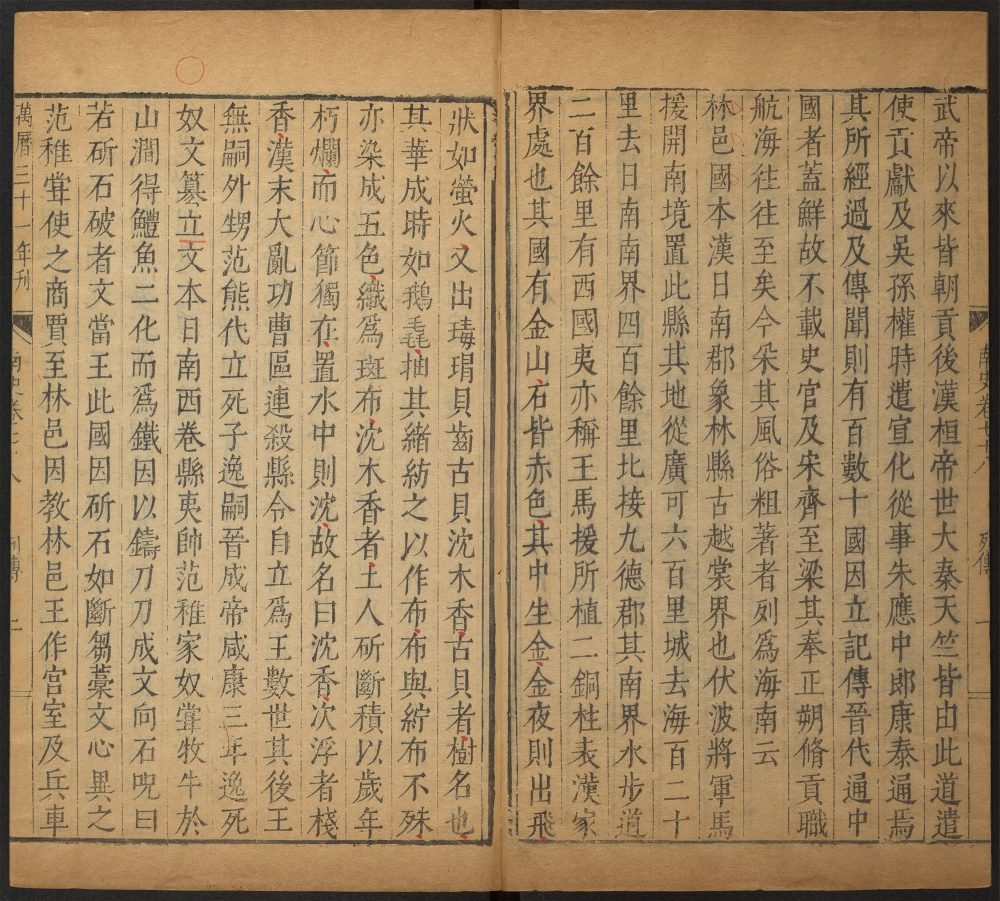 武帝以來皆朝貢後漢桓帝世大秦天竺皆由此道遣
使貢獻及吳孫權時遣宣化從事朱應中郎康泰通焉
其所經過及傳聞則有百數十國因立記傳晉代通中
國者蓋鮮故不載史官及宋齊至梁其奉正朔脩貢職
航海往往至矣今采其風俗粗著者列為海南云
林邑國本漢日南郡象林縣古越裳界也伏波將軍馬
援開南境置此縣其地從廣可六百里城去海百二十
里去日南南界四百餘里北接九德郡其南界水步道
二百餘里有西國夷亦稱王馬援所植二銅柱表漢家
界處也其國有金山石皆赤色其中生金金夜則出飛
南史卷七十八 列傳 一
狀如螢火又出瑇瑁貝齒古貝沈木香古貝者樹名也
其華成時如鵝毳抽其緒紡之以作布布與紵布不殊
亦染成五色織爲斑布沈木香者土人斫斷積以歲年
朽爛而心節獨在置水中則沈故名曰沈香次浮者棧
香漢末大亂功曹區連殺縣令自立爲王數世其後王
無嗣外甥范熊代立死子逸嗣晉成帝咸康三年逸死
奴文篡立文本日南西卷縣夷帥范稚家奴甞牧牛於
山澗得鱧魚二化而爲鐵因以鑄刀刀成文向石呪曰
若斫石破者文當王此國因斫石如斷芻藁文心異之
范稚甞使之商賈至林邑因教林邑王作宮室及兵車
萬曆三十一年刊 南史卷七十八 列傳 二